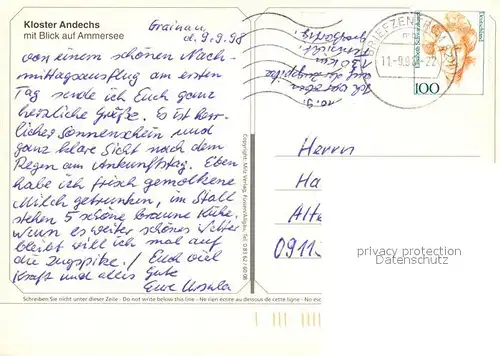 Kloster Andechs
mit Blick auf Ammersee
Grainau,
d. 9.9.98
von einem schönen Nach-
mittagsausflug am ersten
Tag sende ich Euch ganz
herzliche Grüße. Es ist herr-
licher Sonnenschein und
ganz klare Sicht nach dem
Regen am Ankunftstag. Eben
habe ich frisch gemolkene
Milch getrunken, im Stall
stehen 5 schöne braune Kühe.
Wenn es weiter schönes Wetter
bleibt will ich mal auf
die Zugspitze! Euch viel
Kraft und alles Gute
Eure Ursula
Schreiben Sie nicht unter dieser Zeile - Do not write below this line - Ne rien écrire au dessous de cette ligne - Non scrivere
10.9.
Ich war oben
auf der Zugspitze
BRIEFZENTRUM
11.-9.98-22
Deutsche Bundespost
Deutschland
100
Herrn
Ha
Alte
0911
privacy protection
Datenschutz